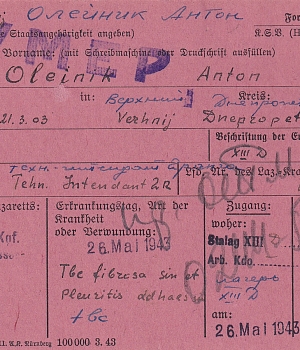 Олейник Антон
(Staatsangehörigkeit angeben) K.S.B. (H
УМЕР
Vorname: (mit Schreibmaschine oder Druckschrift ausfüllen)
Oleinik Anton
in: Верхний Kreis: Днепропе
21.3.03 Verhnij Dneprope
Beschriftung der Er
XIII D
Техн.
Tehn. Intendant 2R Lfd Nr. des Laz.-Kra
zaretts: Erkrankungstag, Art der Zugang:
Krankheit woher:
Knf. oder Verwundung: Stalag XIII
26. Mai 1943 Arb. Kdo.
Tbc fibrosa sin et лагерь
Pleuritis XIII D
tbc am:
26. Mai 1943
Nürnberg 100000 3. 43